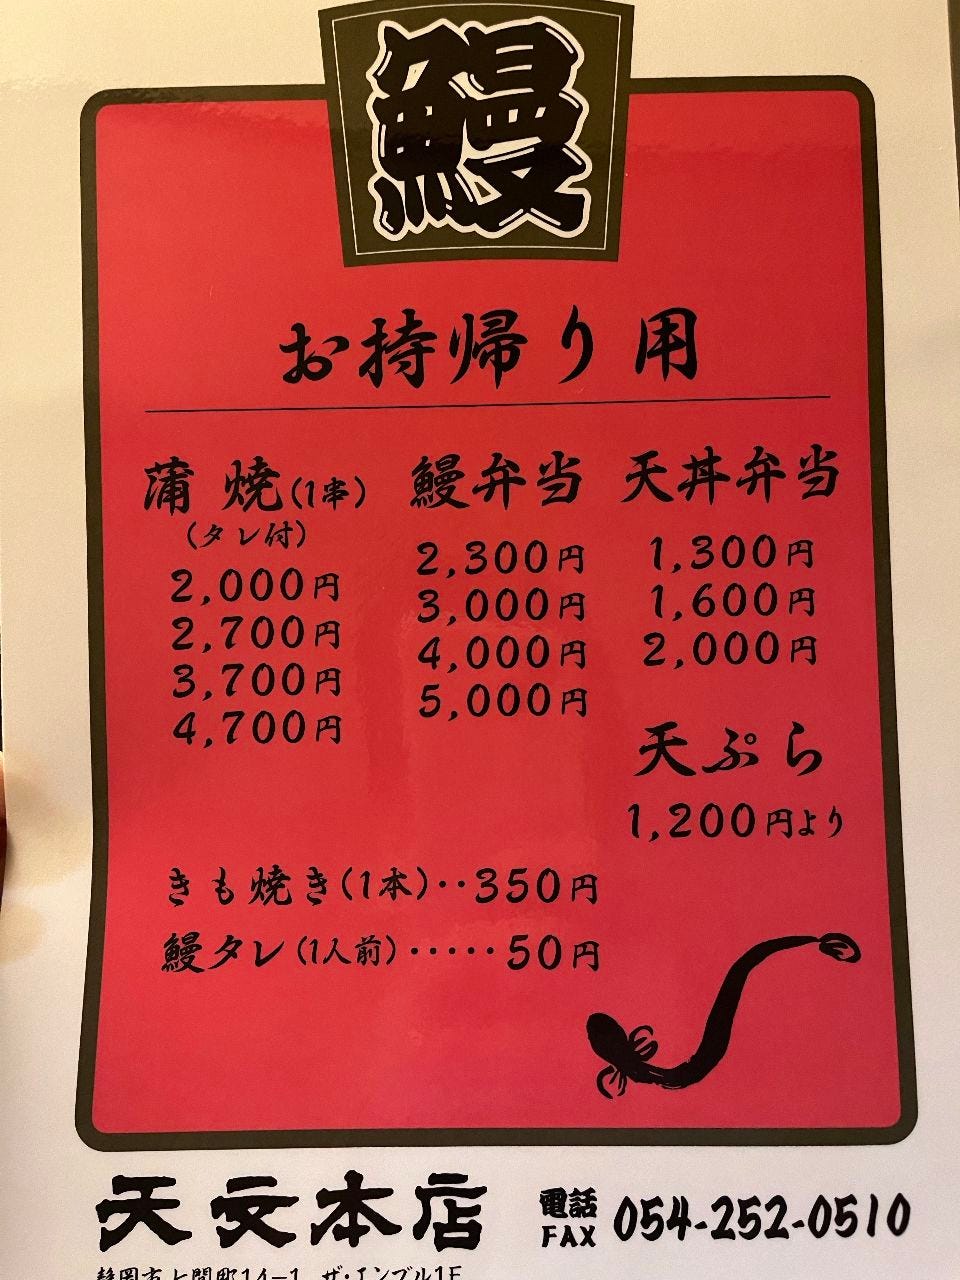 鰻
お持帰り用
蒲焼(1串)
(タレ付)
2,000円
2,700円
3,700円
4,700円
鰻弁当
2,300円
3,000円
4,000円
5,000円
天丼弁当
1,300円
1,600円
2,000円
天ぷら
1,200円より
きも焼き(1本)‥350円
鰻タレ(1人前)‥‥‥50円
天文本店
電話
FAX 054-252-0510
静岡市七間町14-1 ザ・エンブル1F